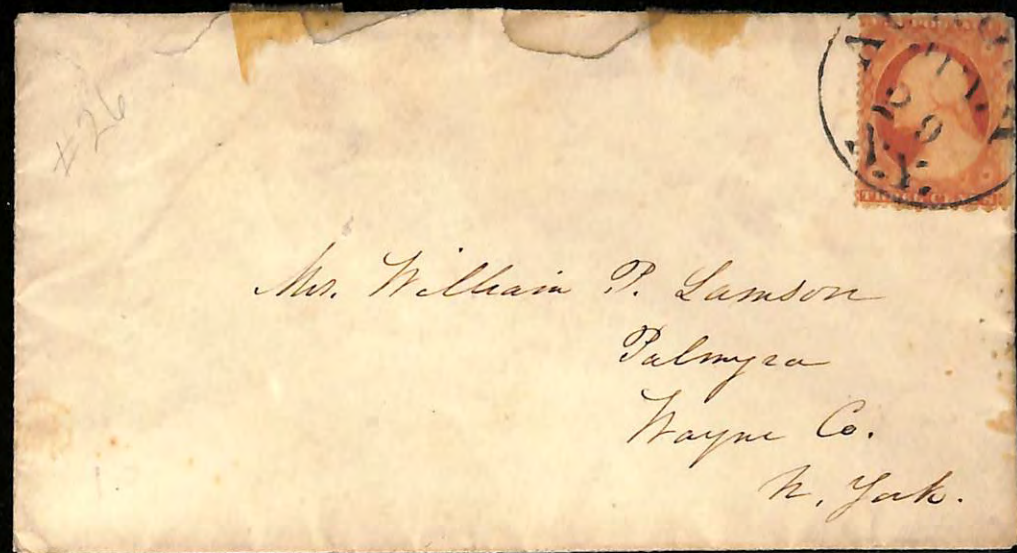 #26
29
N.Y.
Mrs. William P. Lamson
Palmyra
Wayne Co.
N. York.